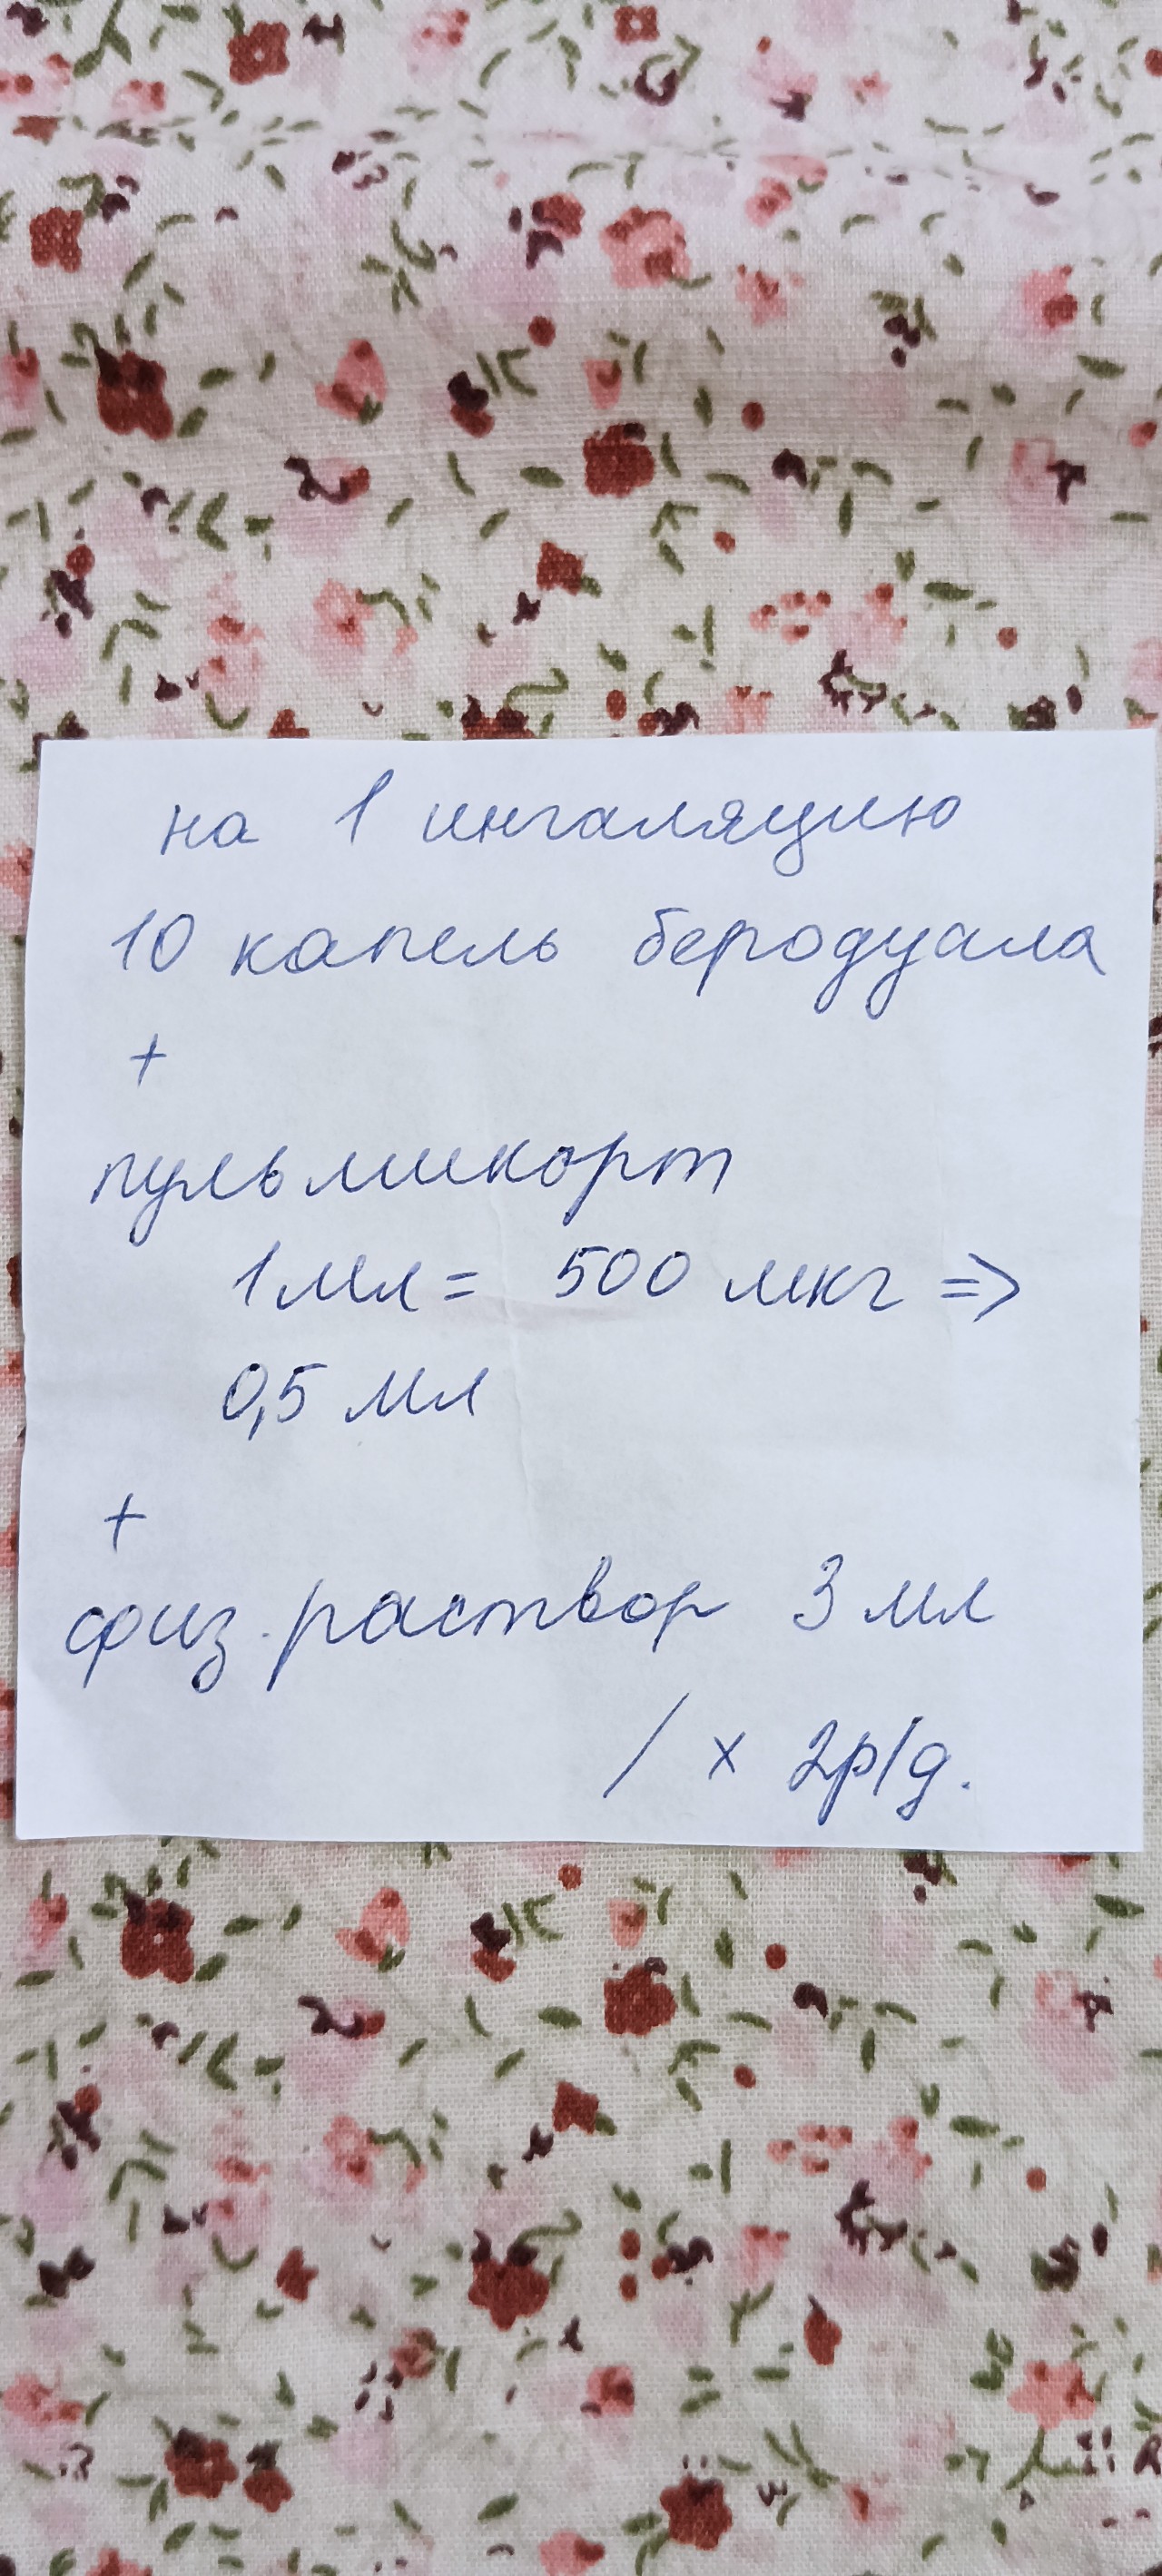 на 1 ингаляцию
10 капель беродуала
+
пульмикорт
1 мл = 500 мкг =>
0,5 мл
+
физ. раствор 3 мл
/ x 2р/д.